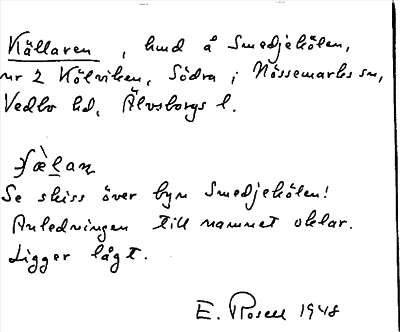 Källaren, hmd å Smedjekölen,
nr 2 Kölviken, Södra i Nössemarks sn,
Vedbo hd, Älvsborgs l.
Se skiss över byn Smedjekölen!
Anledningen till namnet oklar.
Ligger lågt.
E. Rosell 1948